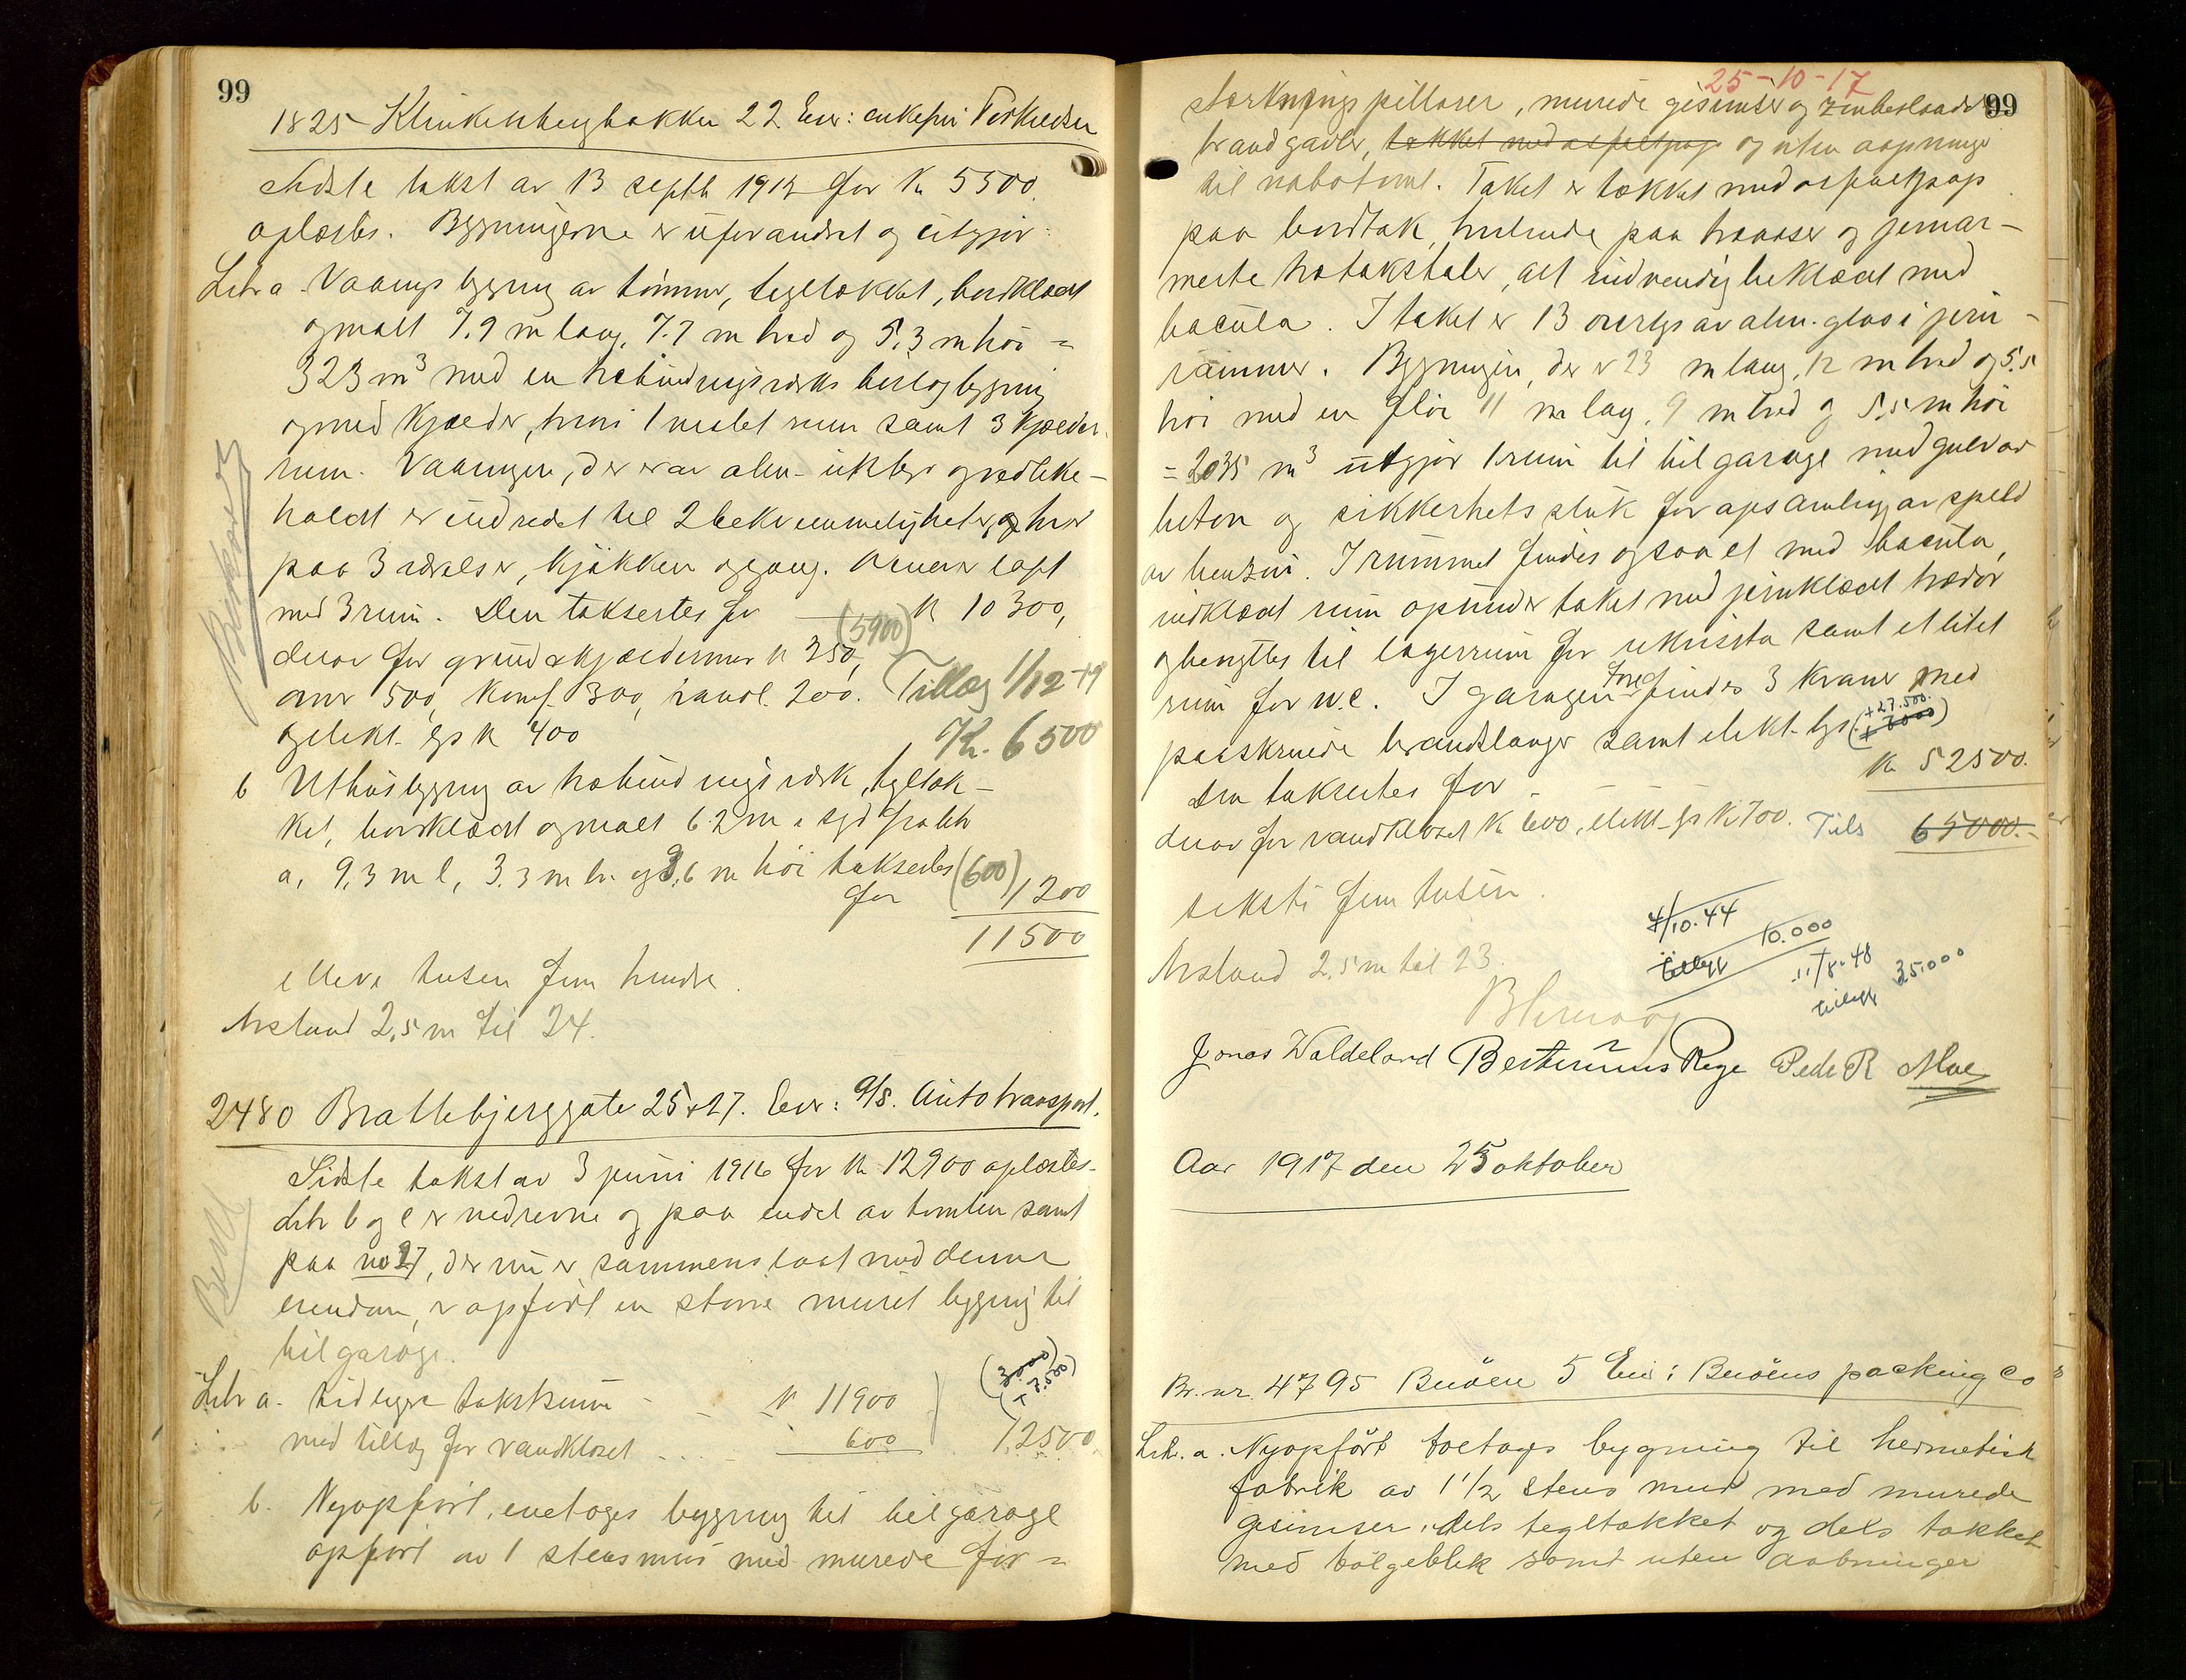 99
1825 Klinkenbergbakken 22 Eier: enkefru Torkildsen
Sidste takst av 13 septb 1912 for kr 5500
oplæstes. Bygningerne er uforandret og utgjör:
Litr a. Vaanings bygning av tömmer, tegltækket, bordklædt
og malt 7.9 m lang, 7.7 m bred og 5.3 m höi =
323 m³ med en utbindingsverks bislagbygning
og med kjælder, hvori 1 malet rum samt 3 kjælder
rum. Vaaningen, der er av alm. utstyr og vedlike-
holdt er indredet til 2 bekvemmeligheter, hver
paa 3 værelser, kjökken og gang. Over er loft
med 3 rum. Den taksertes for kr 10300,
derav for grund & kjældermur kr 250, (5900)
ovner 500, komf. 300, vandl. 200. Tillæg 1/12-19
og elekt. lys kr 400 Kr. 6500
b Uthusbygning av utbindingsverk, tegltæk-
ket, bordklædt og malt 6.2 m i syd fra litr
a, 9.3 m l, 3.3 m br. og 3.6 m höi taksertes (600)
for 1200
11500
elleve tusen fem hundre.
Avstand 2,5 m til 24.
2480 Brattebjerggate 25 & 27. Eier: A/S. Autotransport.
Sidste takst av 3 juni 1916 for kr 12900 oplæstes.
Litr b og c er nedrevne og paa endel av tomten samt
paa no 27, der nu er sammenslaat med denne
eiendom, er opfört en större muret bygning til
bilgarage.
Litr a. tidligere takstsum kr 11900 (3.000)
(+ 7.500)
med tillæg for vandkloset 600 12500
b. Nyopfört, enetages bygning til bilgarage
opfört av 1 stens mur med murede for=
25-10-17
99
stærknings pillarer, murede gesimser og zinkbeslaade
brandgavler, takket med asfaltpap og uten aapninger
til nabotomt. Taket er tækket med asfaltpap
paa bordtak, hvilende paa traaser og jernar-
merte tratakstoler, alt indvendig beklædt med
bacula. I taket er 13 overlys av alm. glas i jern-
rammer. Bygningen, der er 23 m lang, 12 m bred og 5.5
höi med en flöi 11 m lang, 9 m bred og 5.5 m höi
= 2035 m³ utgjör 1 rum til bilgarage med gulv av
beton og sikkerhets sluk for opsamling av spild
av benzin. I rummet findes ogsaa et med bacula
indklædt rum opunder taket med jernklædt trædör
og benyttes til lagerrum for rekvisita samt et litet
rum for w.c. I garagen findes 3 kraner med
paaskruede brandslanger samt elekt. lys (+ 27.500)
Den taksertes for kr 52500.
derav for vandkloset kr 600, elekt. lys kr 700. Tils 65000.-
seksti fem tusen.
4/10.44 tillegg 10.000
Avstand 2,5 m til 23.
11/8.48 tillegg 35.000
Jonas Waldeland Bertinius Rege Peder R Moe
Aar 1917 den 25 oktober
Br. nr. 4795 Buöen 5 Eier: Buöens packing Co
Litr. a. Nyopfört toetages bygning til hermetisk
fabrik av 1 1/2 stens mur med murede
gesimser, dels tegltækket og dels tækket
med bölgeblik samt uten aabninger